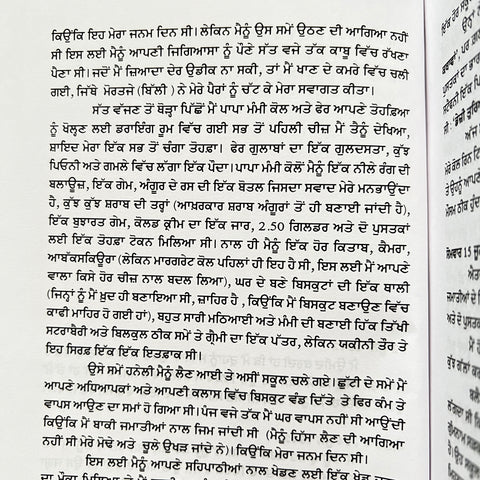 ਕਿਉਂਕਿ ਇਹ ਮੇਰਾ ਜਨਮ ਦਿਨ ਸੀ। ਲੇਕਿਨ ਮੈਨੂੰ ਉਸ ਸਮੇਂ ਉਠਣ ਦੀ ਆਗਿਆ ਨਹੀਂ
ਸੀ ਇਸ ਲਈ ਮੈਨੂੰ ਆਪਣੀ ਜਿਗਿਆਸਾ ਨੂੰ ਪੌਣੇ ਸੱਤ ਵਜੇ ਤੱਕ ਕਾਬੂ ਵਿੱਚ ਰੱਖਣਾ
ਪੈਣਾ ਸੀ। ਜਦੋਂ ਮੈਂ ਜ਼ਿਆਦਾ ਦੇਰ ਉਡੀਕ ਨਾ ਸਕੀ, ਤਾਂ ਮੈਂ ਖਾਣ ਦੇ ਕਮਰੇ ਵਿੱਚ ਚਲੀ
ਗਈ, ਜਿੱਥੇ ਮੋਰਤਜੇ (ਬਿੱਲੀ ) ਨੇ ਮੇਰੇ ਪੈਰਾਂ ਨੂੰ ਚੱਟ ਕੇ ਮੇਰਾ ਸਵਾਗਤ ਕੀਤਾ।
ਸੱਤ ਵੱਜਣ ਤੋਂ ਥੋੜ੍ਹਾ ਪਿੱਛੋਂ ਮੈਂ ਪਾਪਾ ਮੰਮੀ ਕੋਲ ਅਤੇ ਫੇਰ ਆਪਣੇ ਤੋਹਫ਼ਿਆ
ਨੂੰ ਖੋਲ੍ਹਣ ਲਈ ਡਰਾਇੰਗ ਰੂਮ ਵਿੱਚ ਗਈ ਸਭ ਤੋਂ ਪਹਿਲੀ ਚੀਜ਼ ਮੈਂ ਤੈਨੂੰ ਦੇਖਿਆ,
ਸ਼ਾਇਦ ਮੇਰਾ ਇੱਕ ਸਭ ਤੋਂ ਚੰਗਾ ਤੋਹਫ਼ਾ। ਫੇਰ ਗੁਲਾਬਾਂ ਦਾ ਇੱਕ ਗੁਲਦਸਤਾ, ਕੁੱਝ
ਪਿਓਨੀ ਅਤੇ ਗਮਲੇ ਵਿੱਚ ਲੱਗਾ ਇੱਕ ਪੌਦਾ। ਪਾਪਾ ਮੰਮੀ ਕੋਲੋਂ ਮੈਨੂੰ ਇੱਕ ਨੀਲੇ ਰੰਗ ਦੀ
ਬਲਾਊਜ਼, ਇੱਕ ਗੇਮ, ਅੰਗੂਰ ਦੇ ਰਸ ਦੀ ਇੱਕ ਬੋਤਲ ਜਿਸਦਾ ਸਵਾਦ ਮੇਰੇ ਮਨਭਾਉਂਦਾ
ਹੈ, ਕੁੱਝ ਕੁੱਝ ਸ਼ਰਾਬ ਦੀ ਤਰ੍ਹਾਂ (ਆਖ਼ਰਕਾਰ ਸ਼ਰਾਬ ਅੰਗੂਰਾਂ ਤੋਂ ਹੀ ਬਣਾਈ ਜਾਂਦੀ ਹੈ),
ਇੱਕ ਬੁਝਾਰਤ ਗੇਮ, ਕੋਲਡ ਕ੍ਰੀਮ ਦਾ ਇੱਕ ਜਾਰ, 2.50 ਗਿਲਡਰ ਅਤੇ ਦੋ ਪੁਸਤਕਾਂ
ਲਈ ਇੱਕ ਤੋਹਫ਼ਾ ਟੋਕਨ ਮਿਲਿਆ ਸੀ। ਨਾਲ ਹੀ ਮੈਨੂੰ ਇੱਕ ਹੋਰ ਕਿਤਾਬ, ਕੈਮਰਾ,
ਆਬੱਕਸਕਿਊਰਾ (ਲੇਕਿਨ ਮਾਰਗਰੇਟ ਕੋਲ ਪਹਿਲਾਂ ਹੀ ਇਹ ਹੈ ਸੀ, ਇਸ ਲਈ ਮੈਂ ਆਪਣੇ
ਵਾਲਾ ਕਿਸੇ ਹੋਰ ਚੀਜ਼ ਨਾਲ ਬਦਲ ਲਿਆ), ਘਰ ਦੇ ਬਣੇ ਬਿਸਕੁਟਾਂ ਦੀ ਇੱਕ ਥਾਲੀ
(ਜਿਨ੍ਹਾਂ ਨੂੰ ਮੈਂ ਖ਼ੁਦ ਹੀ ਬਣਾਇਆ ਸੀ, ਜ਼ਾਹਿਰ ਹੈ , ਕਿਉਂਕਿ ਮੈਂ ਬਿਸਕੁਟ ਬਣਾਉਣ ਵਿੱਚ
ਕਾਫੀ ਮਾਹਿਰ ਹੋ ਗਈ ਹਾਂ), ਬਹੁਤ ਸਾਰੀ ਮਠਿਆਈ ਅਤੇ ਮੰਮੀ ਦੀ ਬਣਾਈ ਹਿੱਕ ਤਿੱਖੀ
ਸਟਰਾਬੈਰੀ ਅਤੇ ਬਿਲਕੁਲ ਠੀਕ ਸਮੇਂ ਤੇ ਗ੍ਰੈਮੀ ਦਾ ਇੱਕ ਪੱਤਰ, ਲੇਕਿਨ ਯਕੀਨੀ ਤੌਰ ਤੇ
ਇਹ ਸਿਰਫ਼ ਇੱਕ ਇੱਕ ਇਤਫ਼ਾਕ ਸੀ।
ਉਸੇ ਸਮੇਂ ਹਨੇਲੀ ਮੈਨੂੰ ਲੈਣ ਆਈ ਤੇ ਅਸੀਂ ਸਕੂਲ ਚਲੇ ਗਏ। ਛੁੱਟੀ ਦੇ ਸਮੇਂ ਮੈਂ
ਆਪਣੇ ਅਧਿਆਪਕਾਂ ਅਤੇ ਆਪਣੀ ਕਲਾਸ ਵਿੱਚ ਬਿਸਕੁਟ ਵੰਡ ਦਿੱਤੇ ਤੇ ਫਿਰ ਕੰਮ ਤੇ
ਵਾਪਸ ਆਉਣ ਦਾ ਸਮਾਂ ਹੋ ਗਿਆ ਸੀ। ਪੰਜ ਵਜੇ ਤੱਕ ਮੈਂ ਘਰ ਵਾਪਸ ਨਹੀਂ ਸੀ ਆਉਂਦੀ
ਕਿਉਂਕਿ ਮੈਂ ਬਾਕੀ ਜਮਾਤੀਆਂ ਨਾਲ ਜਿਮ ਜਾਂਦੀ ਸੀ (ਮੈਨੂੰ ਹਿੱਸਾ ਲੈਣ ਦੀ ਆਗਿਆ
ਨਹੀਂ ਸੀ ਮੇਰੇ ਮੋਢੇ ਅਤੇ ਚੂਲੇ ਉਖੜ ਜਾਂਦੇ ਨੇ)। ਕਿਉਂਕਿ ਮੇਰਾ ਜਨਮ ਦਿਨ ਸੀ।
ਇਸ ਲਈ ਮੈਨੂੰ ਆਪਣੇ ਸਹਿਪਾਠੀਆਂ ਨਾਲ ਖੇਡਣ ਲਈ ਇੱਕ ਖੇਡ
ਸੋਮਵਾਰ 15 ਜੂਨ